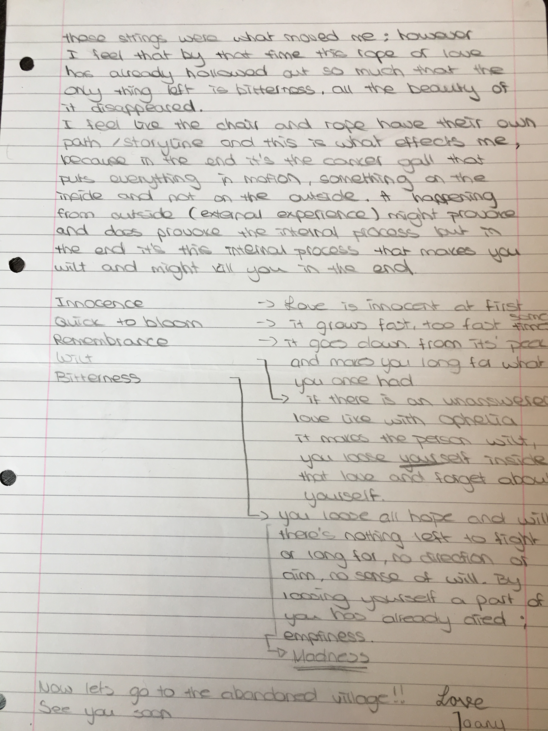 these strings were what moved me; however
I feel that by that time this rope of love
has already hollowed out so much that the
only thing left is bitterness. all the beauty of
it disappeared.
I feel like the chair and rope have their own
path/storyline and this is what effects me,
because in the end it's the cancer gall that
puts everything in motion, something on the
inside and not on the outside. A happening
from outside (external experience) might provoke
and does provoke the internal process but in
the end it's this internal process that makes you
wilt and might kill you in the end.
Innocence -> Love is innocent at first
Quick to bloom -> it grows fast, too fast some time
Remembrance -> it goes down from its' peak
Wilt and makes you long for what
Bitterness you once had
-> if there is an unanswered
love like with Ophelia
it makes the person wilt,
you loose yourself inside
that love and forget about
yourself.
-> you loose all hope and will
there's nothing left to fight
or long for, no direction or
aim, no sense of will. By
loosing yourself a part of
you has already died;
emptiness.
-> Madness
Now lets go to the abandoned village!! Love
See you soon